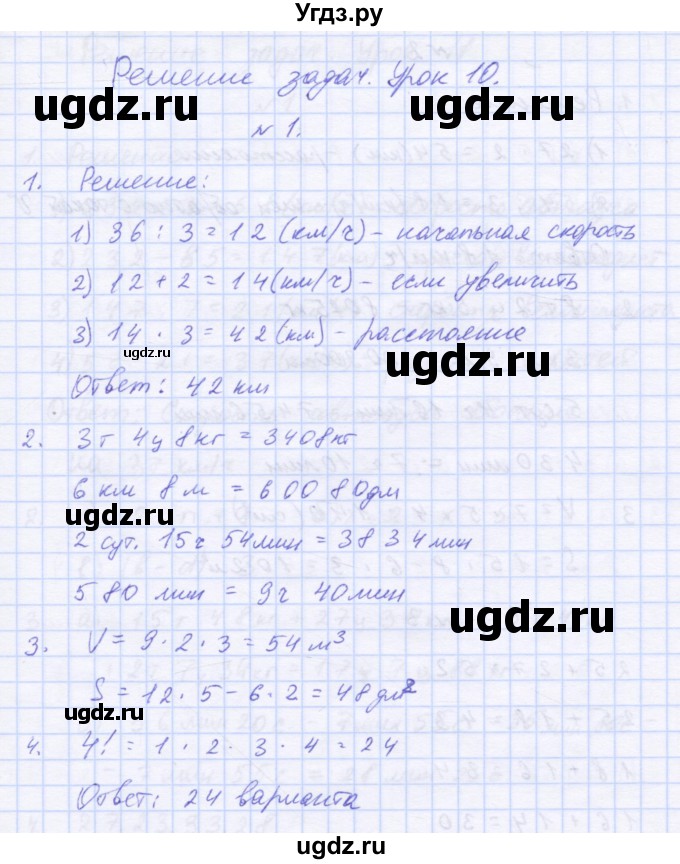 Угдз.ру
Решение задач. Урок 10.
№ 1.
1. Решение:
1) 36 : 3 = 12 (км/ч) - начальная скорость
2) 12 + 2 = 14 (км/ч) - если увеличить
3) 14 · 3 = 42 (км) - расстояние
Ответ: 42 км
2. 3 т 4 ц 8 кг = 3408 кг
6 км 8 м = 60080 дм
2 сут. 15 ч 54 мин = 3834 мин
580 мин = 9 ч 40 мин
3. V = 9 · 2 · 3 = 54 м³
S = 12 · 5 - 6 · 2 = 48 дм²
4. 4! = 1 · 2 · 3 · 4 = 24
Ответ: 24 варианта
ugdz.ru
ugdz.ru
ugdz.ru
ugdz.ru
ugdz.ru
ugdz.ru
ugdz.ru
ugdz.ru